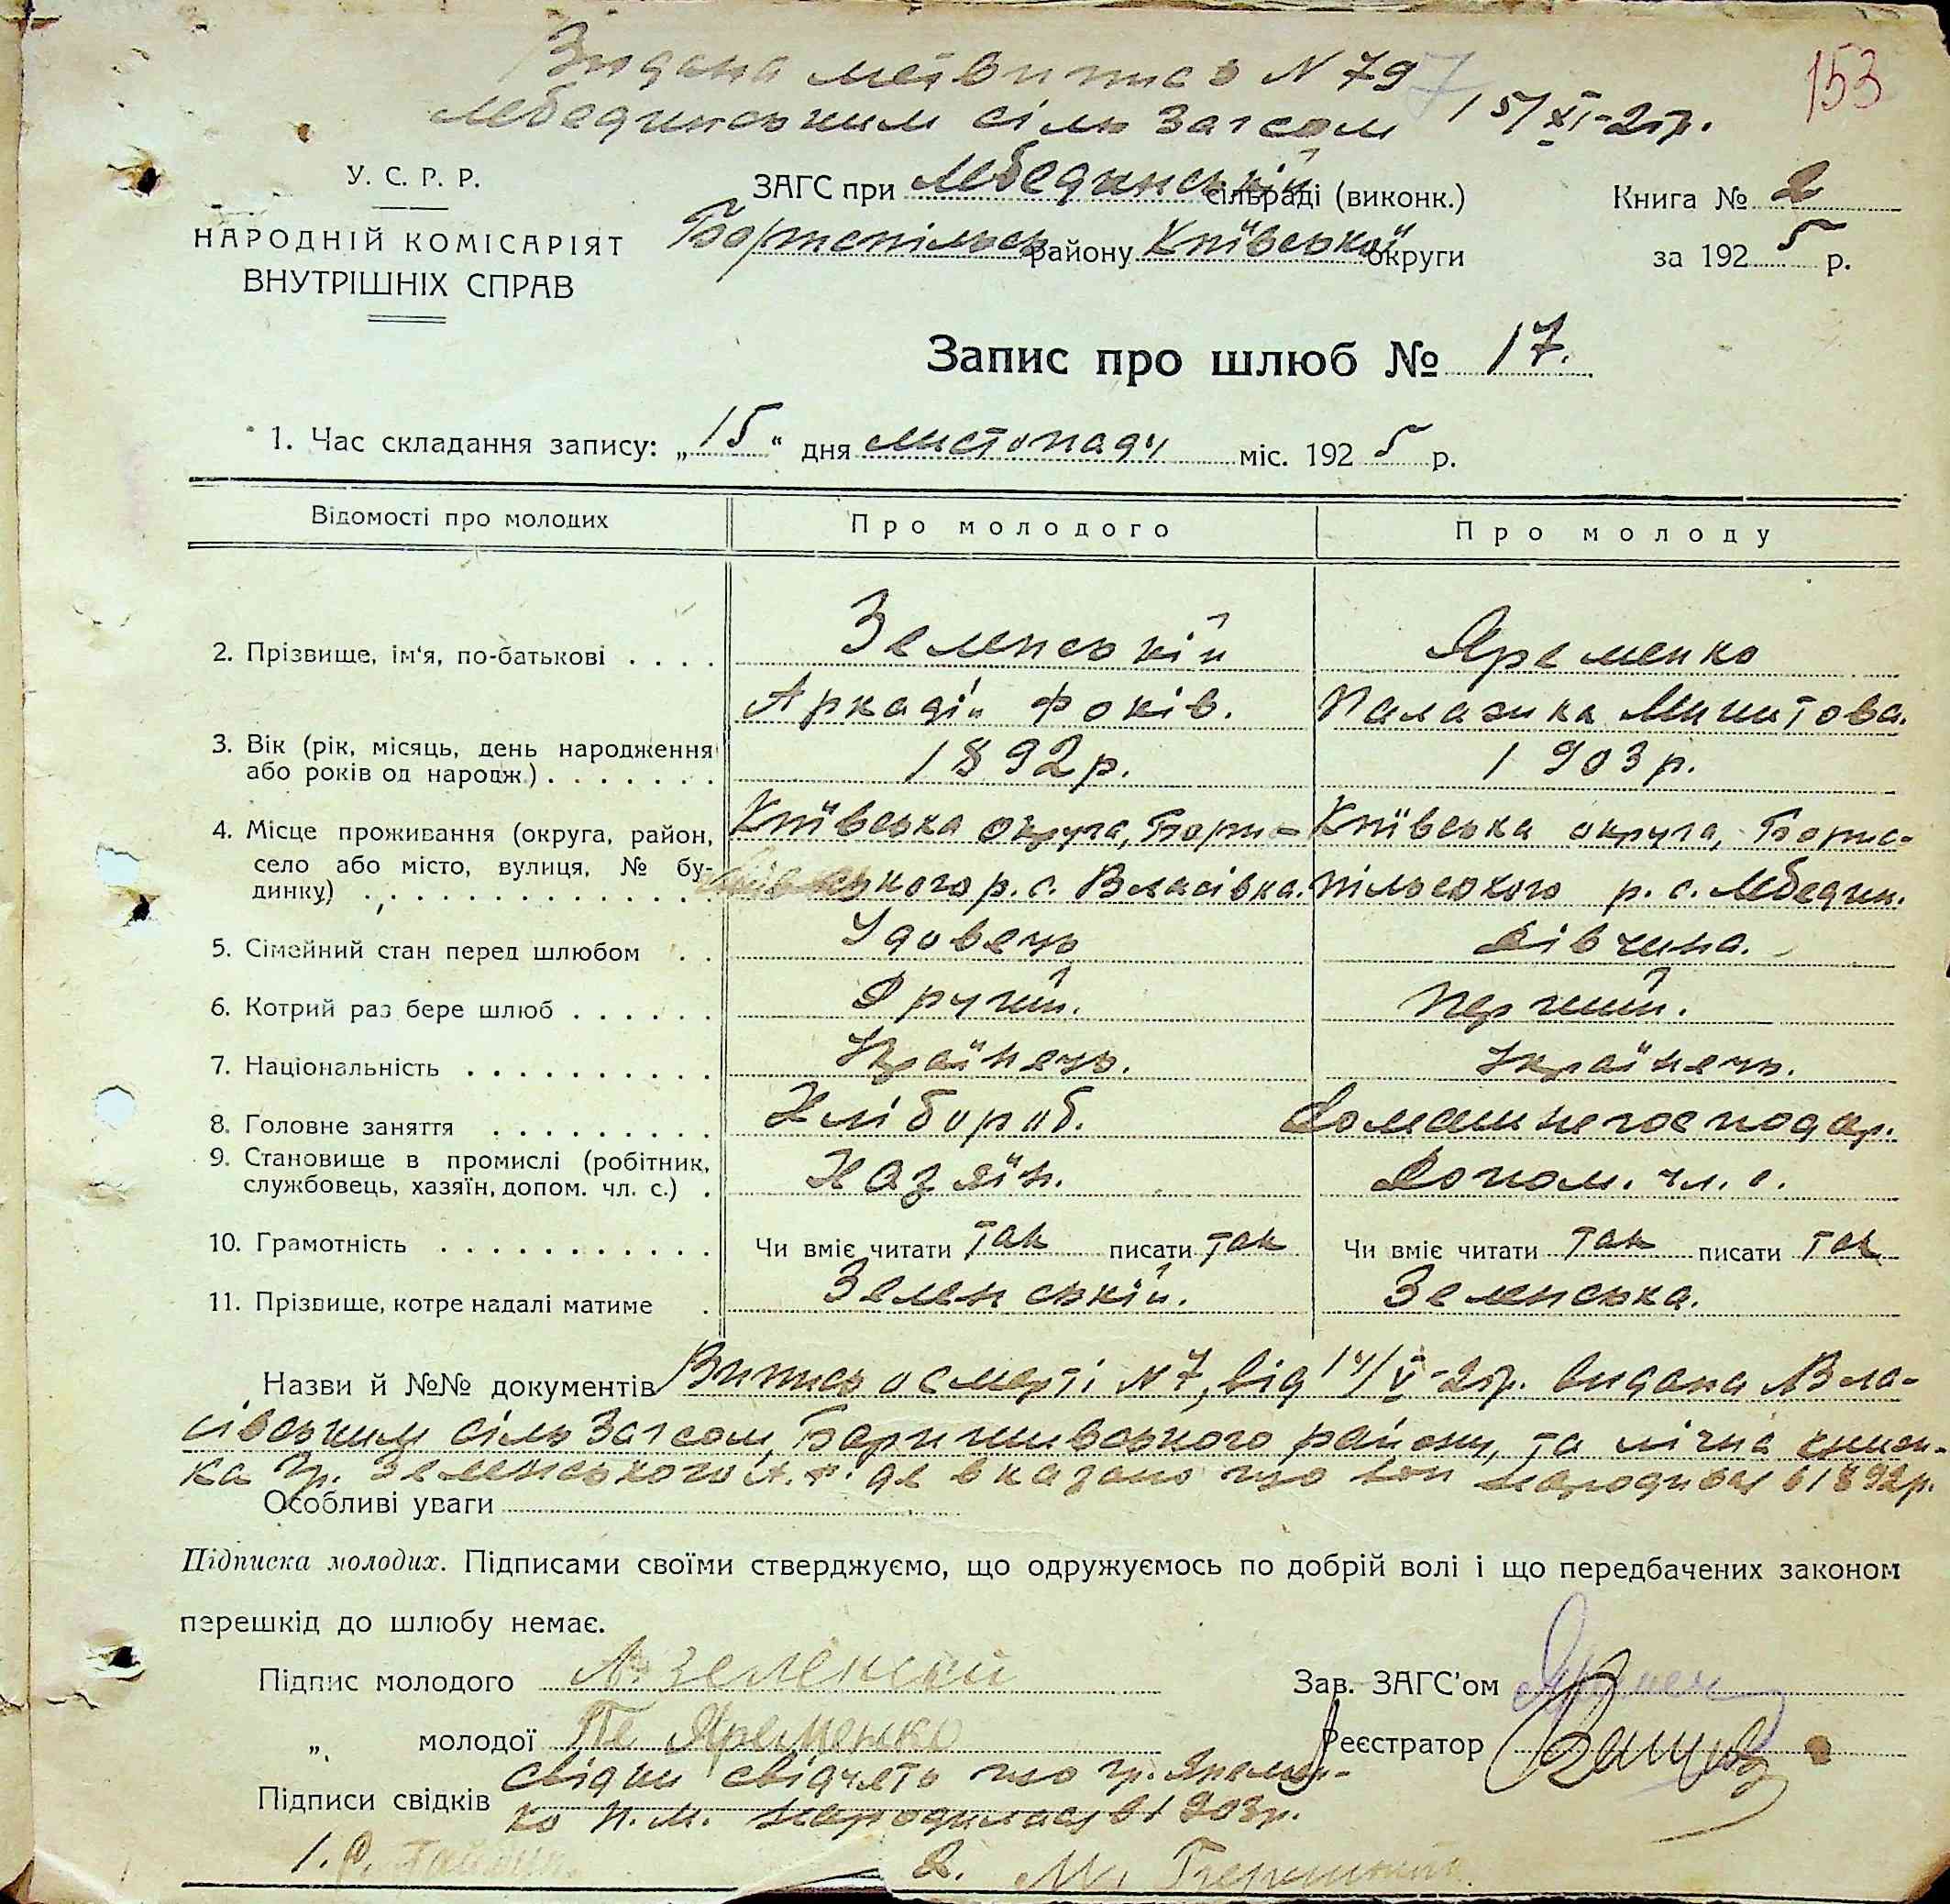 Видана метвитись N 797
Лебединським сільзагсом 15/XI-25р.
153
У. С. Р. Р.
НАРОДНІЙ КОМІСАРІЯТ
ВНУТРІШНІХ СПРАВ
ЗАГС при Лебединській сільраді (виконк.)
Бориспільськ району Київської округи
Книга № 2
за 1925 р.
Запис про шлюб № 17.
1. Час складання запису: „15“ дня листопаду міс. 1925 р.
Відомості про молодих Про молодого Про молоду
2. Прізвище, ім'я, по-батькові . . . . Зеленській Яременко
Аркадій Фоків. Палажка Микитова.
3. Вік (рік, місяць, день народження
або років од народж.) . . . . . . . 1892р. 1903р.
4. Місце проживання (округа, район, Київська округа, Бори- Київська округа, Борис-
село або місто, вулиця, № бу-
динку) . . . . . . . . . . . . . . ського р. с. Власівка. пільського р. с. Лебедин.
5. Сімейний стан перед шлюбом . . Удовець Дівчина.
6. Котрий раз бере шлюб . . . . . . Другий. Перший.
7. Національність . . . . . . . . . . Українець. Українець.
8. Головне заняття . . . . . . . . . Хлібороб. Домашнегосподар.
9. Становище в промислі (робітник,
службовець, хазяїн, допом. чл. с.) . Хазяїн. Допом. чл. с.
10. Грамотність . . . . . . . . . . . . Чи вміє читати так писати так Чи вміє читати так писати так
11. Прізвище, котре надалі матиме . Зеленській. Зеленська.
Назви й №№ документів Витись о смерті N7, від 14/V-25р. видана Вла-
сівським сільЗагсом, Баришивського району, та лічна книж-
ка гр. Зеленського А.Ф. де вказано що він народивсь в 1892р.
Особливі уваги
Підписка молодих. Підписами своїми стверджуємо, що одружуємось по добрій волі і що передбачених законом
перешкід до шлюбу немає.
Підпис молодого А Зеленский
Зав. ЗАГС'ом
„ молодої Пе Яременко
Реєстратор
Підписи свідків свідки свідчять що гр. Яремен-
ко П.М. народилась в 1903р.
1. 2. М.